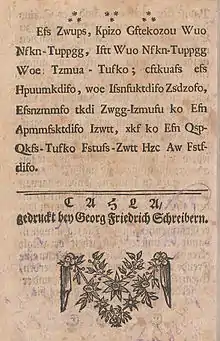 Efs Zwups, Kpizo Gftekozou Wuo
Nfkn-Tuppgg, Isft Wuo Nfkn-Tuppgg
Woe Tzmua-Tufko; cftkuafs efs
Hpuumkdifo, woe Ilsnfuktdifo Zsdzofo,
Efsnzmmfo tkdi Zwgg-Izmufu ko Efn
Apmmfsktdifo Izwtt, xkf ko Efn Qsp-
Qkfs-Tufko Fstufs-Zwtt Hzc Aw Fstf-
difo.
CAHLA,
gedruckt bey Georg Friedrich Schreibern.